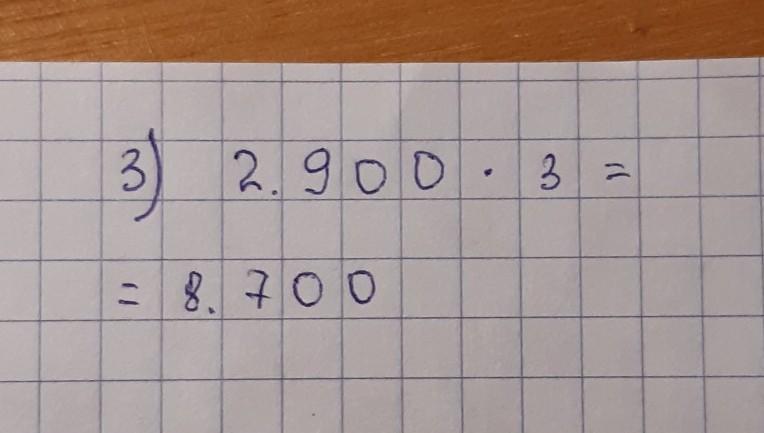 3) 2.900 · 3 =
= 8.700